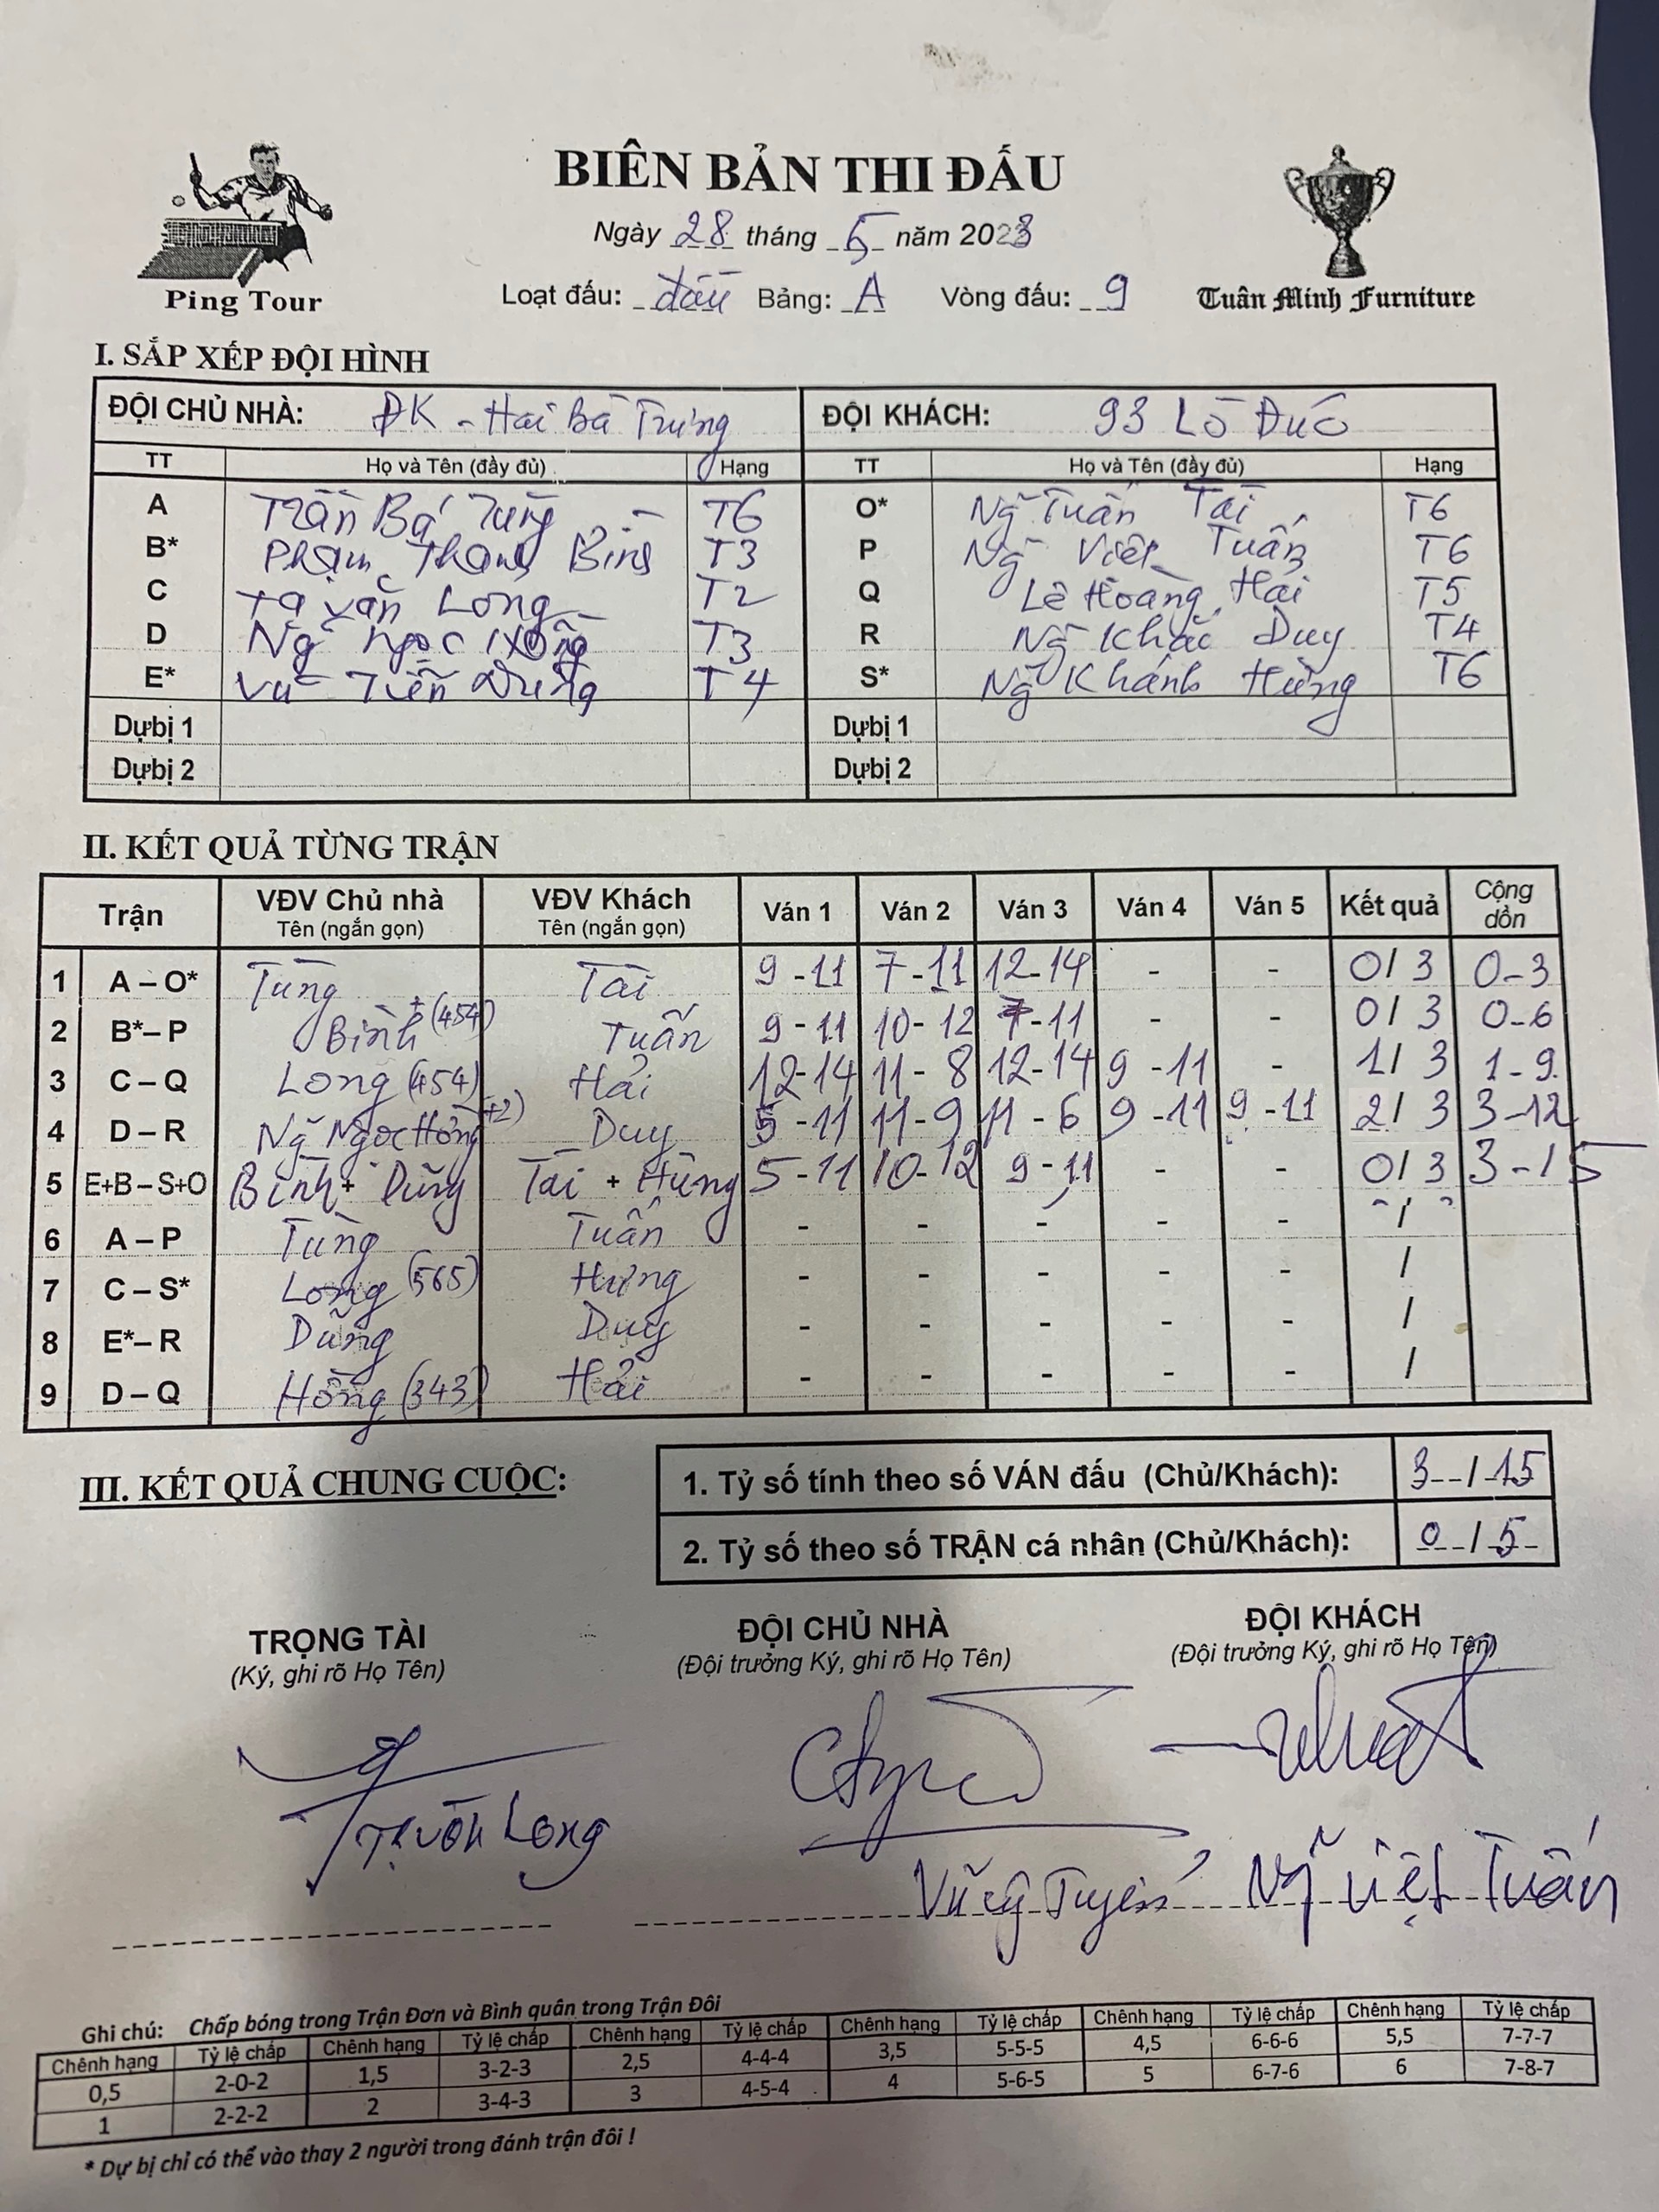 BIÊN BẢN THI ĐẤU
Ngày 28 tháng 5 năm 2023
Loạt đấu: đấu Bảng: A Vòng đấu: 9
Ping Tour
Tuân Minh Furniture
I. SẮP XẾP ĐỘI HÌNH
ĐỘI CHỦ NHÀ: ĐK - Hai Bà Trưng ĐỘI KHÁCH: 93 Lò Đúc
TT Họ và Tên (đầy đủ) Hạng TT Họ và Tên (đầy đủ) Hạng
A Trần Bá Tùng T6 O* Ng Tuấn Tài T6
B* Phạm Thanh Bình T3 P Ng Việt Tuấn T6
C Tạ Văn Long T2 Q Lê Hoàng Hải T5
D Ng Ngọc Hồng T3 R Ng Khắc Duy T4
E* Vũ Tiến Dũng T4 S* Ng Khánh Hưng T6
Dự bị 1 Dự bị 1
Dự bị 2 Dự bị 2
II. KẾT QUẢ TỪNG TRẬN
Trận VĐV Chủ nhà Tên (ngắn gọn) VĐV Khách Tên (ngắn gọn) Ván 1 Ván 2 Ván 3 Ván 4 Ván 5 Kết quả Cộng dồn
1 A – O* Tùng Tài 9-11 7-11 12-14 - - 0/3 0-3
2 B*– P Bình (454) Tuấn 9-11 10-12 7-11 - - 0/3 0-6
3 C – Q Long (454) Hải 12-14 11-8 12-14 9-11 - 1/3 1-9
4 D – R Ng Ngọc Hồng (+2) Duy 5-11 11-9 11-6 9-11 9-11 2/3 3-12
5 E+B – S+O Bình + Dũng Tài + Hùng 5-11 10-12 9-11 - - 0/3 3-15
6 A – P Tùng Tuấn - - - - - /
7 C – S* Long (565) Hưng - - - - - /
8 E*– R Dũng Duy - - - - - /
9 D – Q Hồng (343) Hải - - - - - /
III. KẾT QUẢ CHUNG CUỘC:
1. Tỷ số tính theo số VÁN đấu (Chủ/Khách): 3/15
2. Tỷ số theo số TRẬN cá nhân (Chủ/Khách): 0/5
TRỌNG TÀI ĐỘI CHỦ NHÀ ĐỘI KHÁCH
(Ký, ghi rõ Họ Tên) (Đội trưởng Ký, ghi rõ Họ Tên) (Đội trưởng Ký, ghi rõ Họ Tên)
Long
Ng Việt Tuấn
Ghi chú: Chấp bóng trong Trận Đơn và Bình quân trong Trận Đôi
Chênh hạng Tỷ lệ chấp Chênh hạng Tỷ lệ chấp Chênh hạng Tỷ lệ chấp Chênh hạng Tỷ lệ chấp Chênh hạng Tỷ lệ chấp Chênh hạng Tỷ lệ chấp
0,5 2-0-2 1,5 3-2-3 2,5 4-4-4 3,5 5-5-5 4,5 6-6-6 5,5 7-7-7
1 2-2-2 2 3-4-3 3 4-5-4 4 5-6-5 5 6-7-6 6 7-8-7
* Dự bị chỉ có thể vào thay 2 người trong đánh trận đôi !